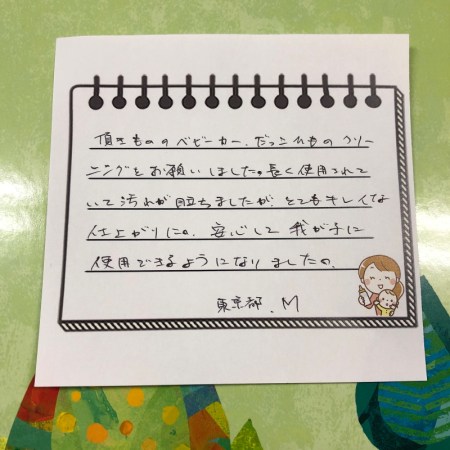 頂きもののベビーカー、だっこひものクリー
ニングをお願いしました。長く使用されて
いて汚れが目立ちましたが、とてもキレイな
仕上がりに。安心して我が子に
使用できるようになりました。
東京都 M